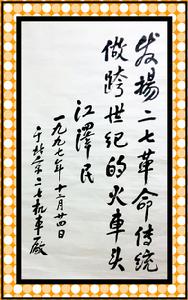 发揚二七革命传统
做跨世纪的火車头
江澤民
一九九七年十二月廿四日
于北京二七机車廠